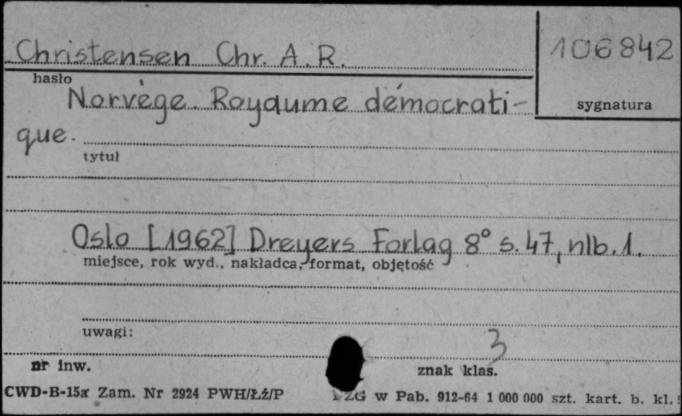 Christensen Chr. A. R.
106842
hasło
sygnatura
Norvège. Royaume démocrati-
que.
tytuł
Oslo [1962] Dreyers Forlag 8° s. 47, nlb. 1.
miejsce, rok wyd., nakładca, format, objętość
uwagi:
3
nr inw.
znak klas.
CWD-B-15a Zam. Nr 2924 PWH/ŁŻ/P
PZG w Pab. 912-64 1 000 000 szt. kart. b. kl.